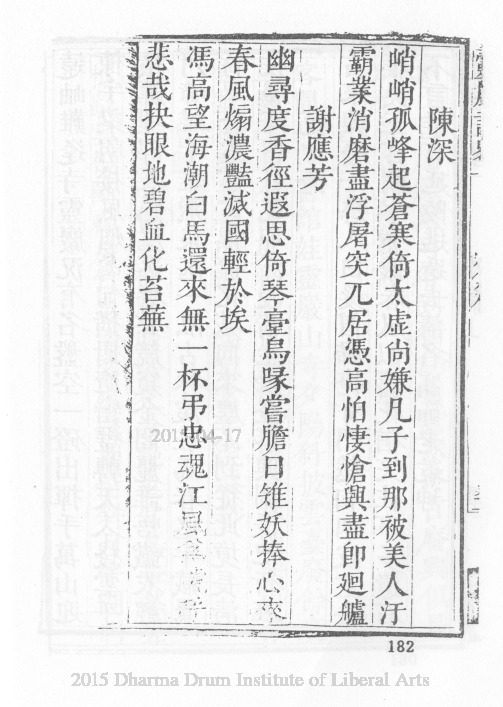 陳深
峭峭孤峰起蒼寒倚太虛尙嫌凡子到那被美人汙
霸業消磨盡浮屠突兀居憑高怕悽愴興盡卽廻艫
謝應芳
幽尋度香徑遐思倚琴臺烏喙嘗膽日雉妖捧心來
春風煽濃豔滅國輕於埃
馮高望海潮白馬還來無一杯弔忠魂江風
悲哉抉眼地碧血化苔蕪
2015-04-17
182
2015 Dharma Drum Institute of Liberal Arts